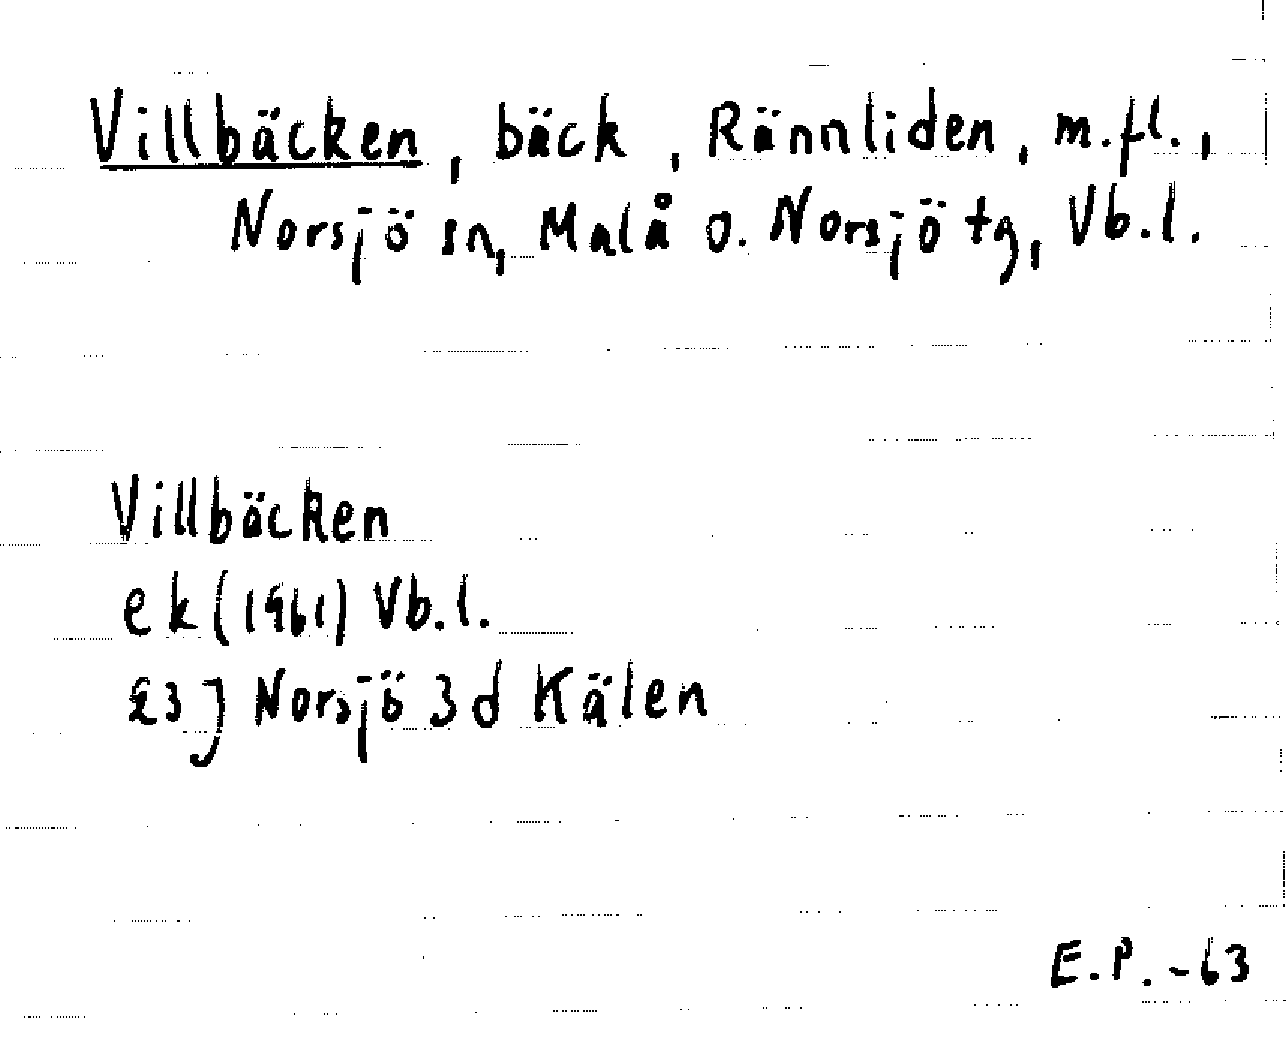 Villbäcken, bäck, Rännliden, m.fl.,
Norsjö sn, Malå o. Norsjö tg, Vb.l.
Villbäcken
ek (1961) Vb.l.
23J Norsjö 3d Kälen
E.P. -63